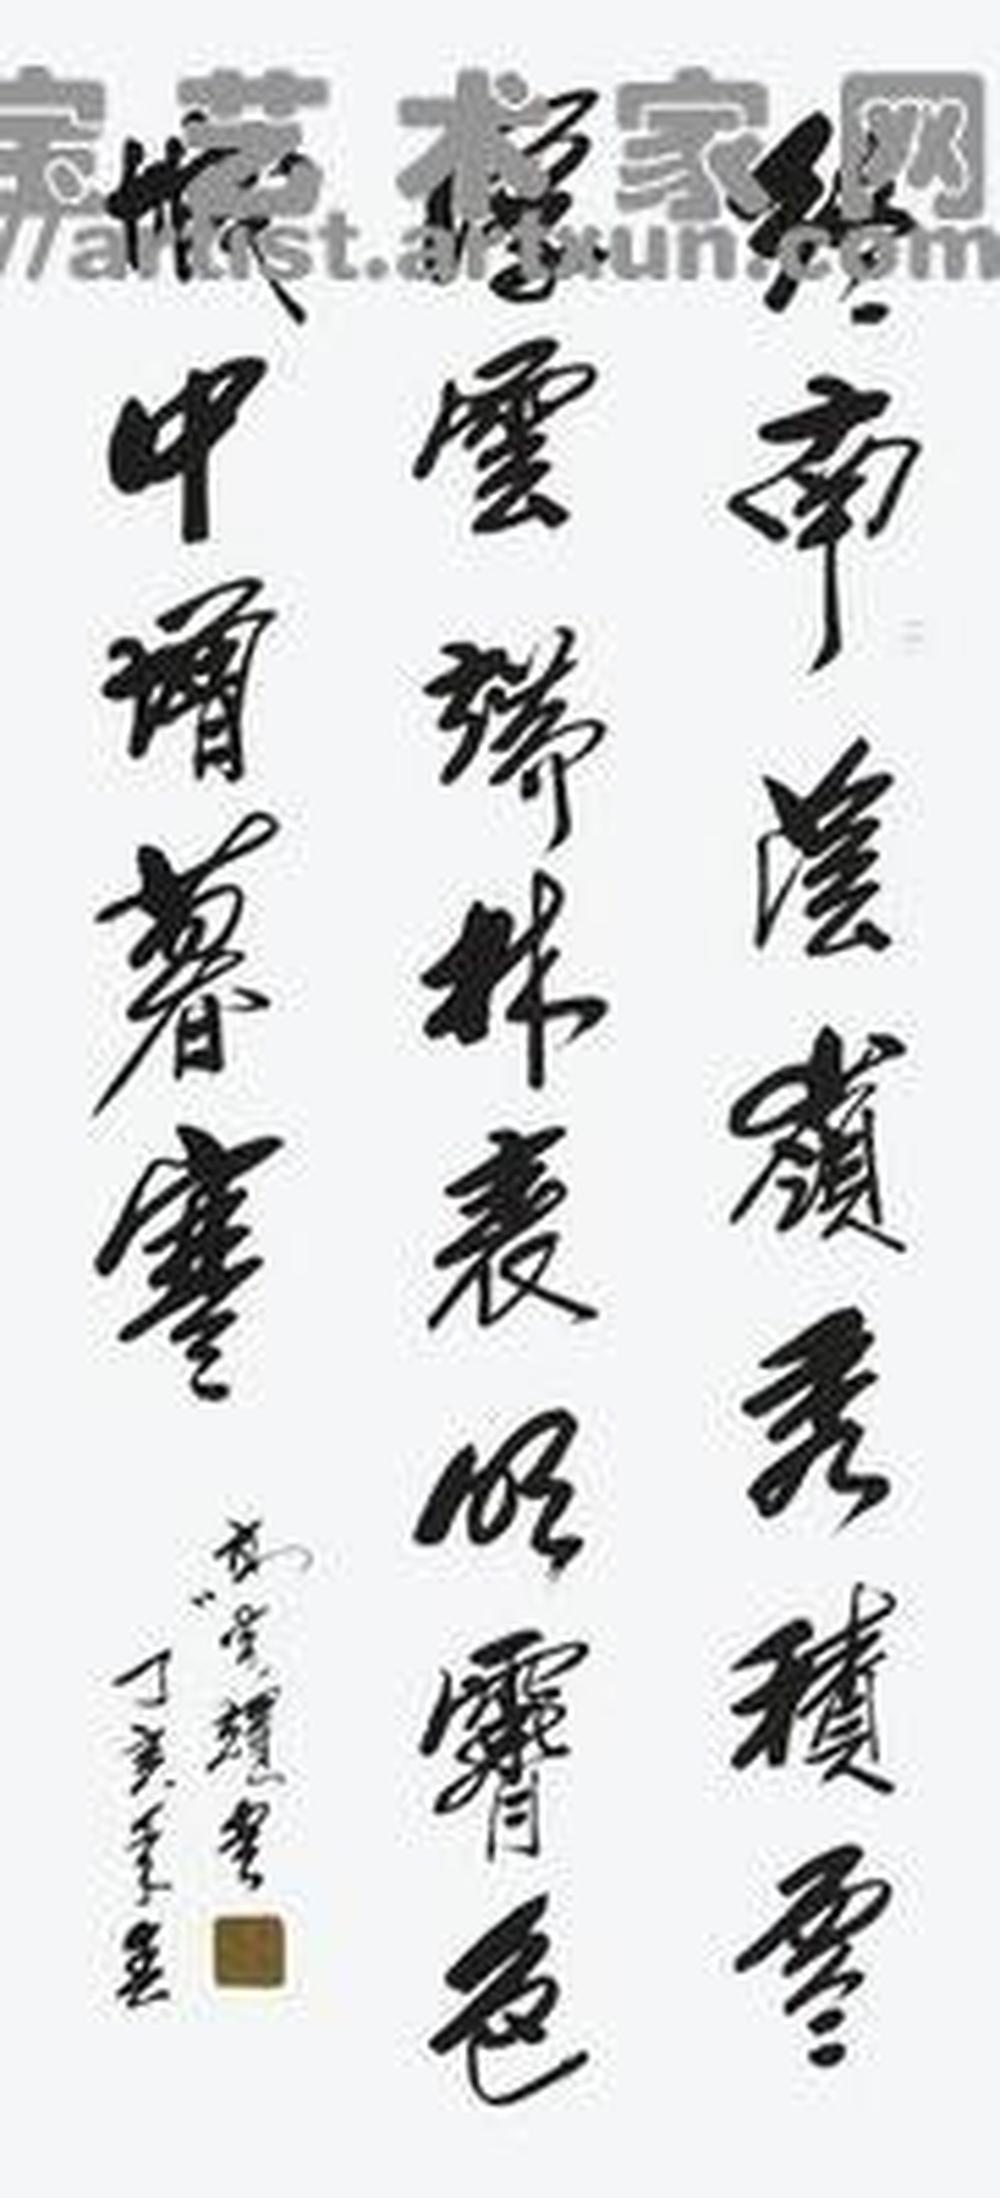 艺术家网
//artist.artxun.com
終南陰嶺秀積雪
浮雲端林表明霽色
城中增暮寒
丁亥